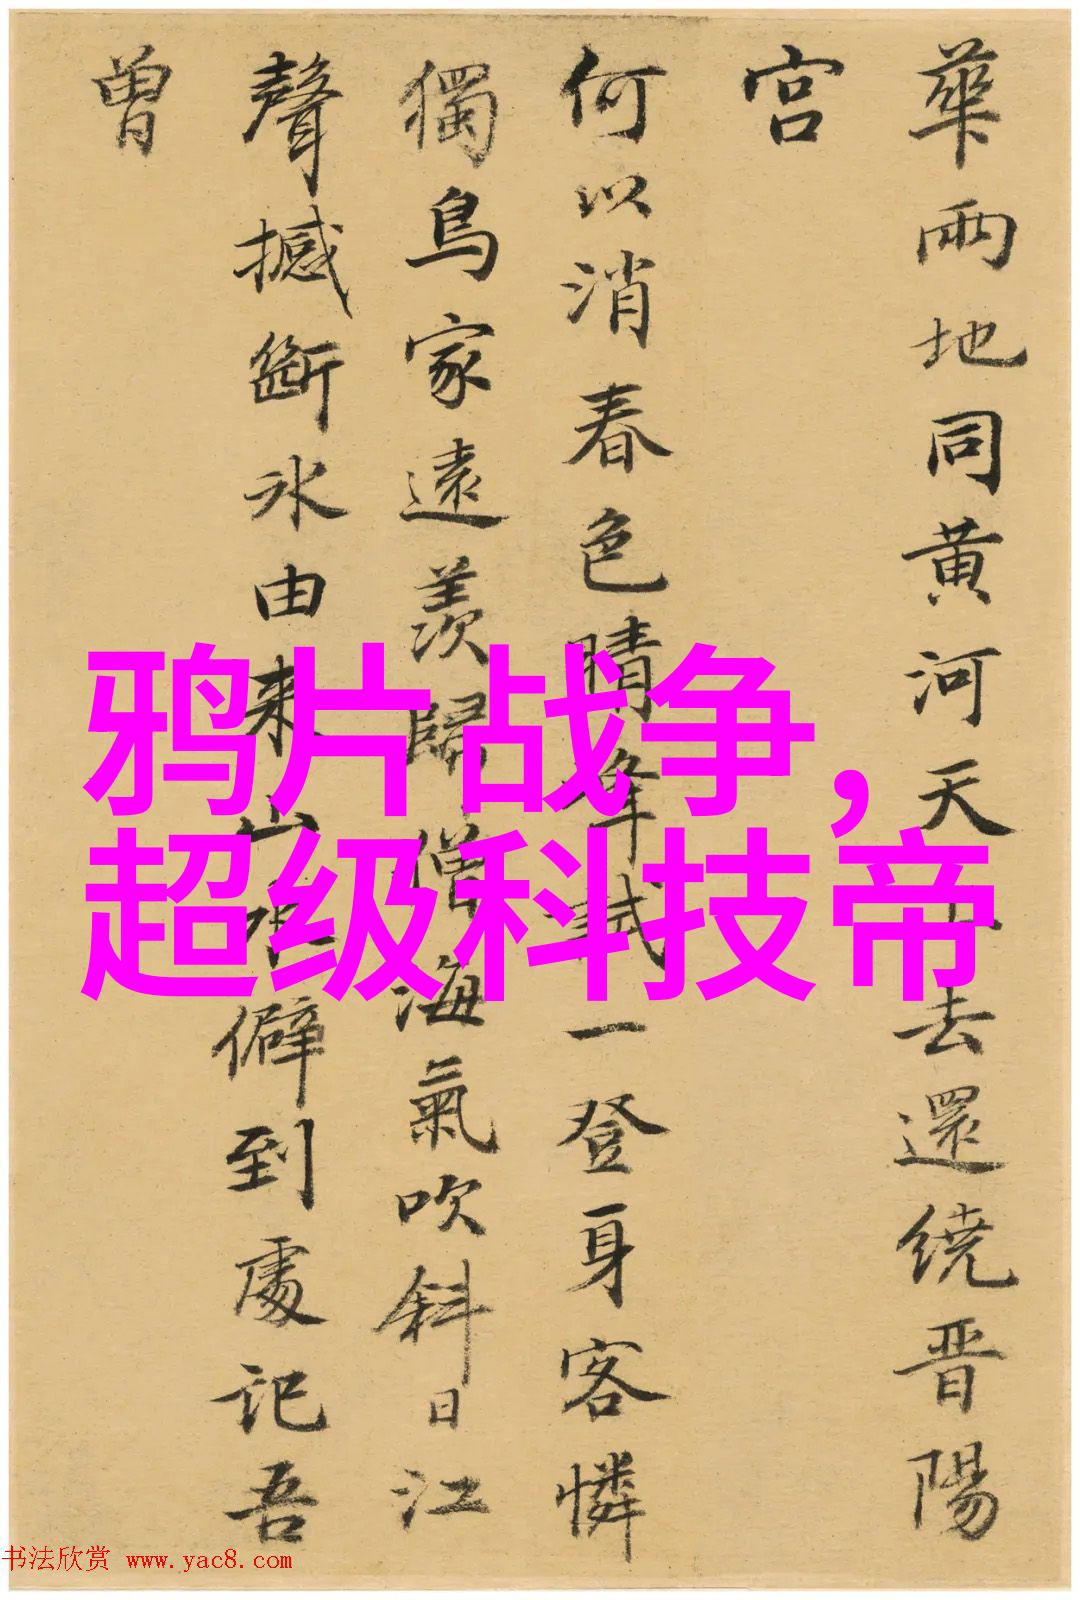 華兩地同黄河天上去還繞晋陽
宫
何以消春色晴峰試一登身客憐
獨鳥家遠羨歸僧海氣吹斜日江
聲撼斷冰由来山水僻到處記吾
曾
鸦片战争，
超级科技帝
书法欣赏 www.yac8.com